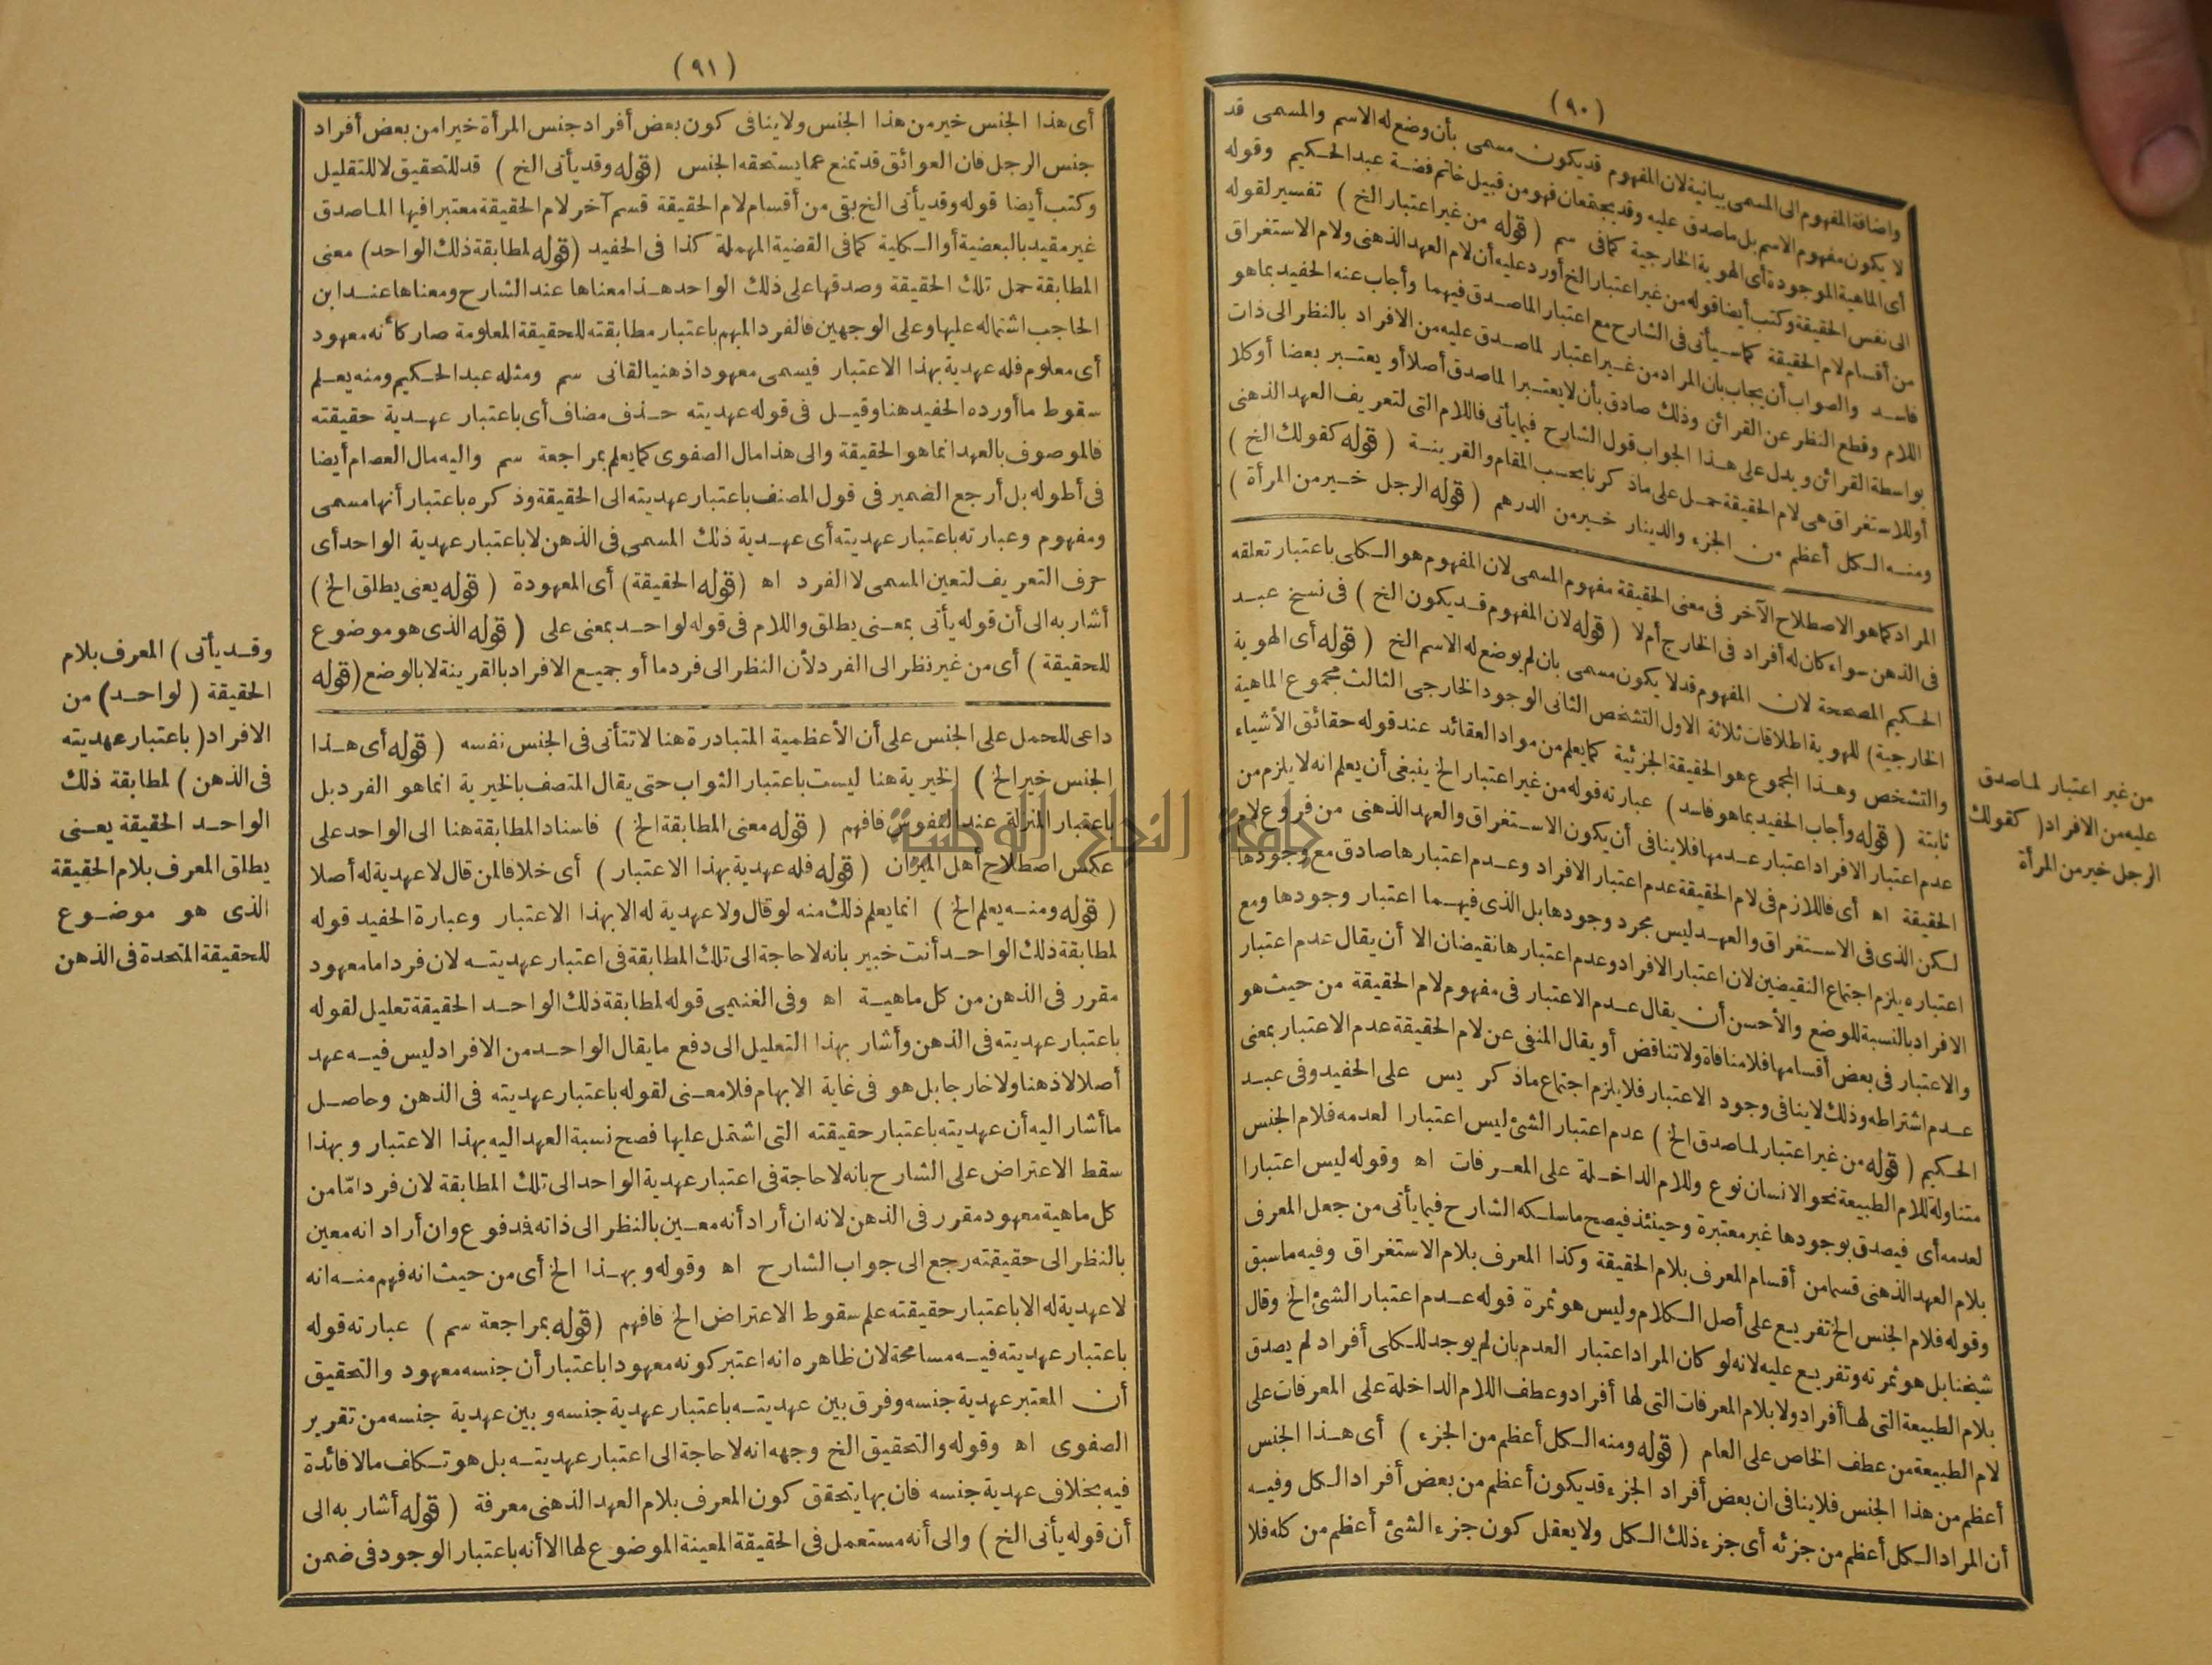 (٩٠)
واضافة المفهوم الى المسمى بيانية لان المفهوم قد يكون مسمى بأن وضع له الاسم والمسمى قد
لا يكون مفهوم الاسم بل ماصدق عليه وقد يجتمعان فهو من قبيل خاتم فضة عبد الحكيم وقوله
أى الماهية الموجودة أى الهوية الخارجية كما فى سم (قوله من غير اعتبار الخ) تفسير لقوله
الى نفس الحقيقة وكتب أيضا قوله من غير اعتبار الخ أورد عليه أن لام العهد الذهنى ولام الاستغراق
من أقسام لام الحقيقة كما سيأتى فى الشارح مع اعتبار الماصدق فيهما وأجاب عنه الحفيد بما هو
فاسد والصواب أن يجاب بان المراد من غير اعتبار لماصدق عليه من الافراد بالنظر الى ذات
اللام وقطع النظر عن القرائن وذلك صادق بأن لا يعتبر الماصدق أصلا أو يعتبر بعضا أو كلا
بواسطة القرائن ويدل على هذا الجواب قول الشارح فيما يأتى فاللام التى لتعريف العهد الذهنى
أو للاستغراق هى لام الحقيقة حمل على ماذكرنا بحسب المقام والقرينة (قوله كقولك الخ)
ومنه الكل أعظم من الجزء والدينار خير من الدرهم (قوله الرجل خير من المرأة)
المراد كما هو الاصطلاح الآخر فى معنى الحقيقة مفهوم المسمى لان المفهوم هو الكلى باعتبار تعلقه
فى الذهن سواء كان له أفراد فى الخارج أم لا (قوله لان المفهوم قد يكون الخ) فى نسخ عبد
الحكيم المصححة لان المفهوم قد لا يكون مسمى بان لم يوضع له الاسم الخ (قوله أى الهوية
الخارجية) للهوية اطلاقات ثلاثة الاول التشخص الثانى الوجود الخارجى الثالث مجموع الماهية
والتشخص وهذا المجموع هو الحقيقة الجزئية كما يعلم من مواد العقائد عند قوله حقائق الأشياء
ثابتة (قوله وأجاب الحفيد بما هو فاسد) عبارته قوله من غير اعتبار الخ ينبغى أن يعلم انه لا يلزم من
عدم اعتبار الافراد اعتبار عدمها فلا ينافى أن يكون الاستغراق والعهد الذهنى من فروع لام
الحقيقة اه أى فاللازم فى لام الحقيقة عدم اعتبار الافراد وعدم اعتبارها صادق مع وجودها
لكن الذى فى الاستغراق والعهد ليس مجرد وجودها بل الذى فيهما اعتبار وجودها ومع
اعتباره يلزم اجتماع النقيضين لان اعتبار الافراد وعدم اعتبارها نقيضان الا أن يقال عدم اعتبار
الافراد بالنسبة للوضع والأحسن أن يقال عدم الاعتبار فى مفهوم لام الحقيقة من حيث هو
والاعتبار فى بعض أقسامها فلا منافاة ولا تناقض أو يقال المنفى عن لام الحقيقة عدم الاعتبار بمعنى
عدم اشتراطه وذلك لا ينافى وجود الاعتبار فلا يلزم اجتماع ماذكر يس على الحفيد وفى عبد
الحكيم (قوله من غير اعتبار لماصدق الخ) عدم اعتبار الشئ ليس اعتبارا لعدمه فلام الجنس
متناولة للام الطبيعة نحو الانسان نوع وللام الداخلة على المعرفات اه وقوله ليس اعتبارا
لعدمه أى فيصدق بوجودها غير معتبرة وحينئذ فيصح ماسلكه الشارح فيما يأتى من جعل المعرف
بلام العهد الذهنى قسما من أقسام المعرف بلام الحقيقة وكذا المعرف بلام الاستغراق وفيه ماسبق
وقوله فلام الجنس الخ تفريع على أصل الكلام وليس هو ثمرة قوله عدم اعتبار الشئ الخ وقال
شيخنا بل هو ثمرته وتفريع عليه لانه لو كان المراد اعتبار العدم بان لم يوجد للكلى أفراد لم يصدق
بلام الطبيعة التى لها أفراد ولا بلام المعرفات التى لها أفراد وعطف اللام الداخلة على المعرفات على
لام الطبيعة من عطف الخاص على العام (قوله ومنه الكل أعظم من الجزء) أى هذا الجنس
أعظم من هذا الجنس فلا ينافى ان بعض أفراد الجزء قد يكون أعظم من بعض أفراد الكل وفيه
أن المراد الكل أعظم من جزئه أى جزء ذلك الكل ولا يعقل كون جزء الشئ أعظم من كله فلا
من غير اعتبار لماصدق
عليه من الافراد (كقولك
الرجل خير من المرأة
(٩١)
أى هذا الجنس خير من هذا الجنس ولا ينافى كون بعض أفراد جنس المرأة خيرا من بعض أفراد
جنس الرجل فان العوائق قد تمنع عما يستحقه الجنس (قوله وقد يأتى الخ) قد للتحقيق لا للتقليل
وكتب أيضا قوله وقد يأتى الخ بقى من أقسام لام الحقيقة قسم آخر لام الحقيقة معتبرا فيها الماصدق
غير مقيد بالبعضية أو الكلية كما فى القضية المهملة كذا فى الحفيد (قوله لمطابقة ذلك الواحد) معنى
المطابقة حمل تلك الحقيقة وصدقها على ذلك الواحد هذا معناها عند الشارح ومعناها عند ابن
الحاجب اشتماله عليها وعلى الوجهين فالفرد المبهم باعتبار مطابقته للحقيقة المعلومة صار كأنه معهود
أى معلوم فله عهدية بهذا الاعتبار فيسمى معهودا ذهنيا لقانى سم ومثله عبد الحكيم ومنه يعلم
سقوط ما أورده الحفيد هنا وقيل فى قوله عهديته حذف مضاف أى باعتبار عهدية حقيقته
فالموصوف بالعهد انما هو الحقيقة والى هذا مال الصفوى كما يعلم بمراجعة سم واليه مال العصام أيضا
فى أطوله بل أرجع الضمير فى قول المصنف باعتبار عهديته الى الحقيقة وذكره باعتبار أنها مسمى
ومفهوم وعبارته باعتبار عهديته أى عهدية ذلك المسمى فى الذهن لا باعتبار عهدية الواحد أى
حرف التعريف لتعين المسمى لا الفرد اه (قوله الحقيقة) أى المعهودة (قوله يعنى يطلق الخ)
أشار به الى أن قوله يأتى بمعنى يطلق واللام فى قوله لواحد بمعنى على (قوله الذى هو موضوع
للحقيقة) أى من غير نظر الى الفرد لأن النظر الى فرد ما أو جميع الافراد بالقرينة لا بالوضع (قوله
داعى للحمل على الجنس على أن الأعظمية المتبادرة هنا لا تتأتى فى الجنس نفسه (قوله أى هذا
الجنس خير الخ) الخيرية هنا ليست باعتبار الثواب حتى يقال المتصف بالخيرية انما هو الفرد بل
باعتبار المنزلة عند النفوس فافهم (قوله معنى المطابقة الخ) فاسناد المطابقة هنا الى الواحد على
عكس اصطلاح أهل الميزان (قوله فله عهدية بهذا الاعتبار) أى خلافا لمن قال لا عهدية له أصلا
(قوله ومنه يعلم الخ) انما يعلم ذلك منه لو قال ولا عهدية له الا بهذا الاعتبار وعبارة الحفيد قوله
لمطابقة ذلك الواحد أنت خبير بانه لا حاجة الى تلك المطابقة فى اعتبار عهديته لان فردا ما معهود
مقرر فى الذهن من كل ماهية اه وفى الغنيمى قوله لمطابقة ذلك الواحد الحقيقة تعليل لقوله
باعتبار عهديته فى الذهن وأشار بهذا التعليل الى دفع ما يقال الواحد من الافراد ليس فيه عهد
أصلا لا ذهنا ولا خارجا بل هو فى غاية الابهام فلا معنى لقوله باعتبار عهديته فى الذهن وحاصل
ما أشار اليه أن عهديته باعتبار حقيقته التى اشتمل عليها فصح نسبة العهد اليه بهذا الاعتبار وبهذا
سقط الاعتراض على الشارح بانه لا حاجة فى اعتبار عهدية الواحد الى تلك المطابقة لان فردا مّا من
كل ماهية معهود مقرر فى الذهن لانه ان أراد أنه معين بالنظر الى ذاته فمدفوع وان أراد انه معين
بالنظر الى حقيقته رجع الى جواب الشارح اه وقوله وبهذا الخ أى من حيث انه فهم منه انه
لا عهدية له الا باعتبار حقيقته علم سقوط الاعتراض الخ فافهم (قوله بمراجعة سم) عبارته قوله
باعتبار عهديته فيه مسامحة لان ظاهره انه اعتبر كونه معهودا باعتبار أن جنسه معهود والتحقيق
أن المعتبر عهدية جنسه وفرق بين عهديته باعتبار عهدية جنسه وبين عهدية جنسه من تقرير
الصفوى اه وقوله والتحقيق الخ وجهه انه لا حاجة الى اعتبار عهديته بل هو تكلف مالا فائدة
فيه بخلاف عهدية جنسه فان بها يتحقق كون المعرف بلام العهد الذهنى معرفة (قوله أشار به الى
أن قوله يأتى الخ) والى أنه مستعمل فى الحقيقة المعينة الموضوع لها الا أنه باعتبار الوجود فى ضمن
وقد يأتى) المعرف بلام
الحقيقة (لواحد) من
الافراد (باعتبار عهديته
فى الذهن) لمطابقة ذلك
الواحد الحقيقة يعنى
يطلق المعرف بلام الحقيقة
الذى هو موضوع
للحقيقة المتحدة فى الذهن
جامعة النجاح الوطنية